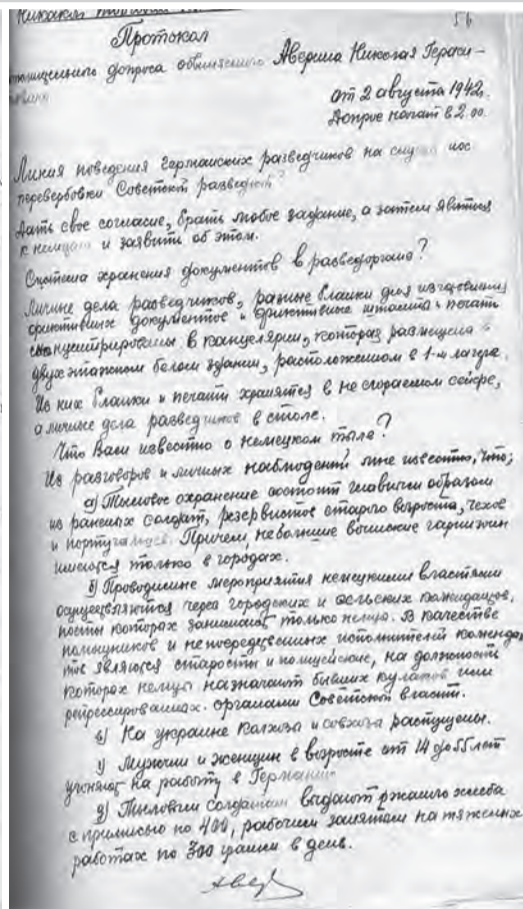 56
Протокол
допроса обвиняемого Аверина Николая Гераси-
от 2 августа 1942г.
Допрос начат в 2.00.
Линия поведения германских разведчиков на случай их
перевербовки Советской разведкой?
Дать свое согласие, брать любое задание, а затем явиться
к немцам и заявить об этом.
Система хранения документов в разведоргане?
Личные дела разведчиков, разные бланки для изготовления
фиктивных документов и фиктивные штампы и печати
сконцентрированы в канцелярии, которая размещена в
двухэтажном белом здании, расположенном в 1-м лагере.
Из них бланки и печати хранятся в не сгораемом сейфе,
а личные дела разведчиков в столе.
Что Вам известно о немецком тыле?
Из разговоров и личных наблюдений мне известно, что;
а) Тыловое охранение состоит главным образом
из раненых солдат, резервистов старого возраста, чехов
и португальцев. Причем, небольшие воинские гарнизоны
имеются только в городах.
б) Проводимые мероприятия немецкими властями
осуществляются через городских и сельских комендантов,
посты которых занимают только немцы. В качестве
помощников и непосредственных исполнителей комендан
тов являются старосты и полицейские, на должности
которых немцы назначают бывших кулаков или
репрессированных органами Советской власти.
в) На украине колхозы и совхозы распущены.
г) Мужчин и женщин в возрасте от 14 до 55 лет
угоняют на работу в Германию.
д) Тыловым солдатам выдают ржаного хлеба
с примисью по 400, рабочим занятым на тяжелых
работах по 300 грамм в день.